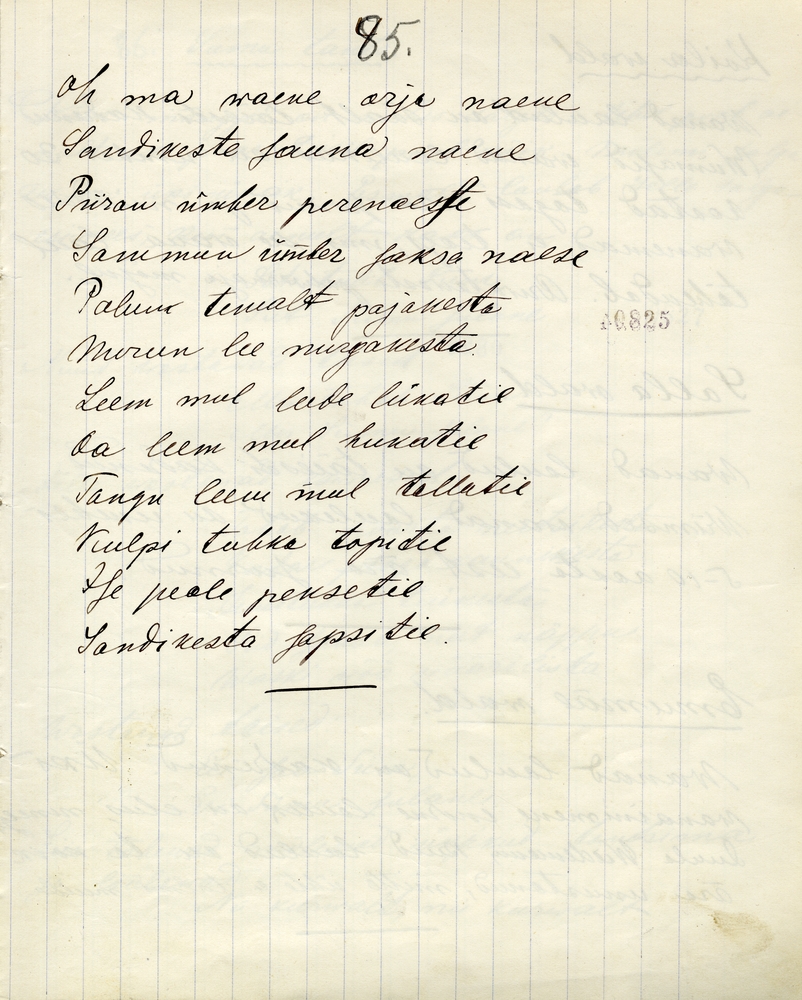 85.
Oh ma waene orja naene
Sandikeste sauna naene
Piiran ümber perenaeste
Sammun ümber saksa naese
Palun temalt pajakesta
Murun lee nurgakesta.
10825
Leem mul leede lükatie
Oa leem mul hukatie
Tangu leem mul tallatie
Kulpi tuhka topitie
Ise peale peksetie
Sandikesta sapsitie.